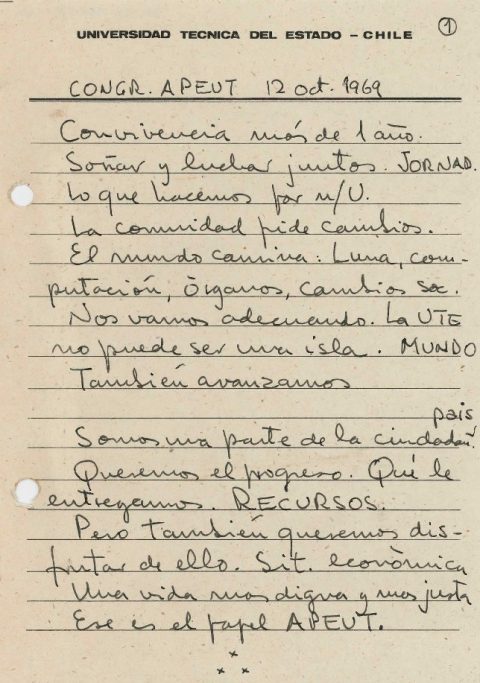 UNIVERSIDAD TECNICA DEL ESTADO – CHILE
1
CONGR. APEUT 12 oct. 1969
Convivencia más de 1 año.
Soñar y luchar juntos. JORNAD.
Lo que hacemos por n/U.
La comunidad pide cambios.
El mundo camina: Luna, com-
putación, Órganos, cambios soc.
Nos vamos adecuando. La UTE
no puede ser una isla. MUNDO
También avanzamos
pais
Somos una parte de la ciudadañ.
Queremos el progreso. Qué le
entregamos. RECURSOS.
Pero también queremos dis-
frutar de ello. Sit. econòmica
Una vida mas digna y mas justa
Ese es el papel APEUT.
x x x